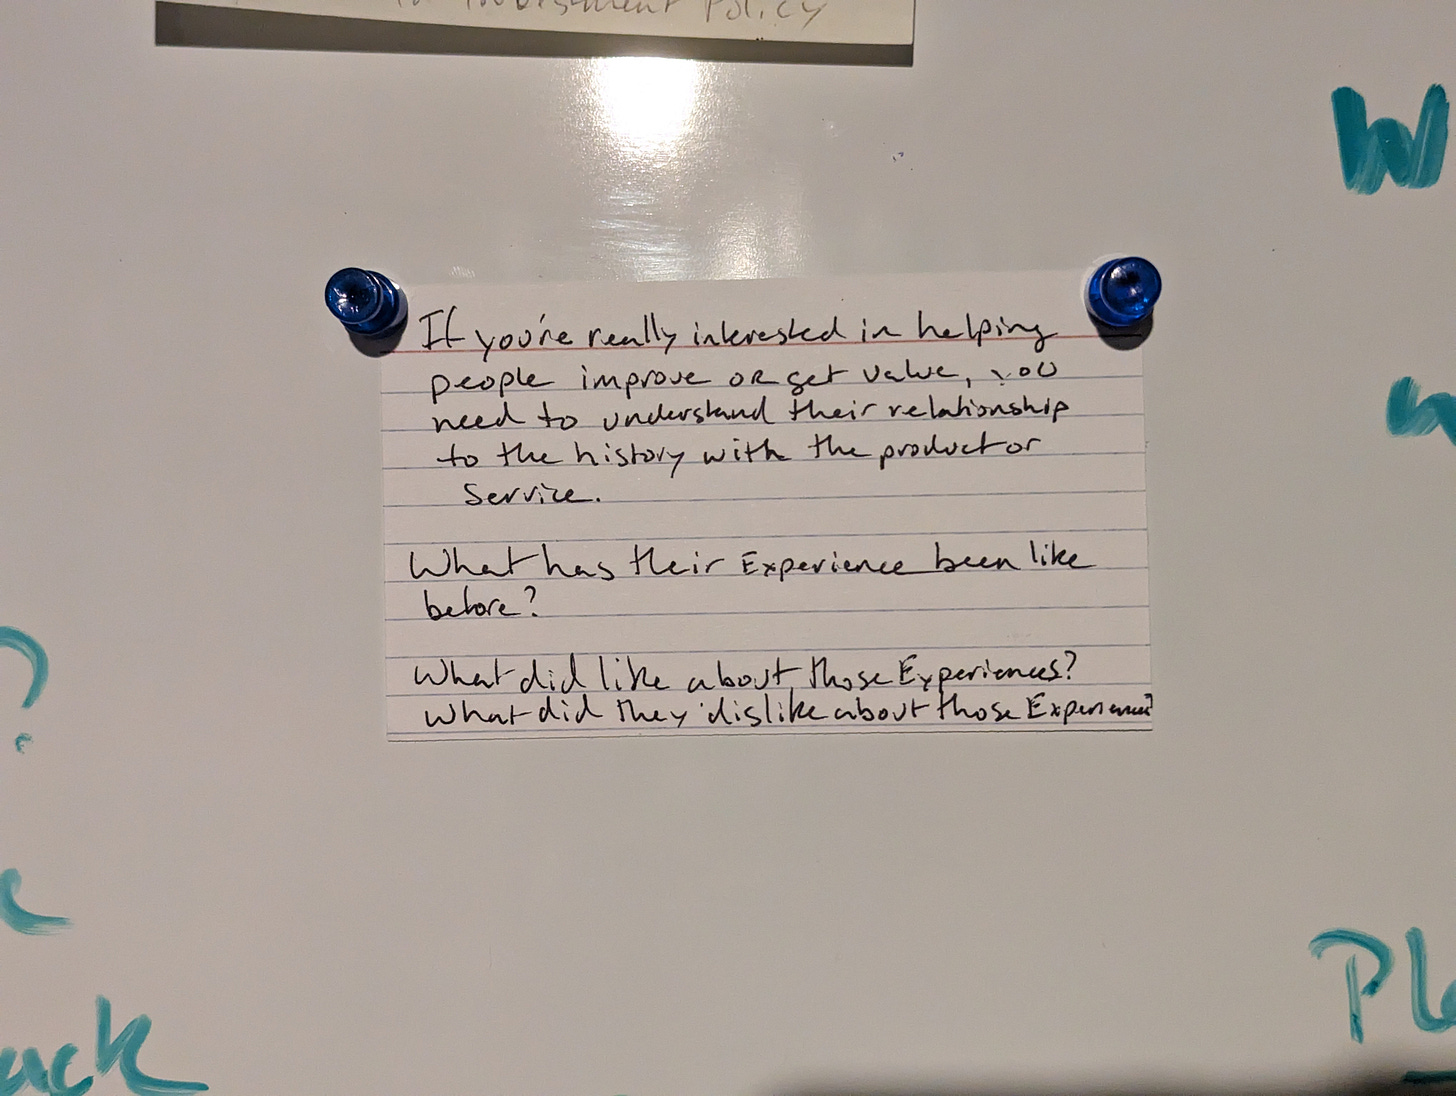 Policy
W
If you're really interested in helping
people improve or get value, you
need to understand their relationship
to the history with the product or
Service.
What has their Experience been like
before?
What did like about those Experiences?
What did they dislike about those Experiences?
?
Pl
ack